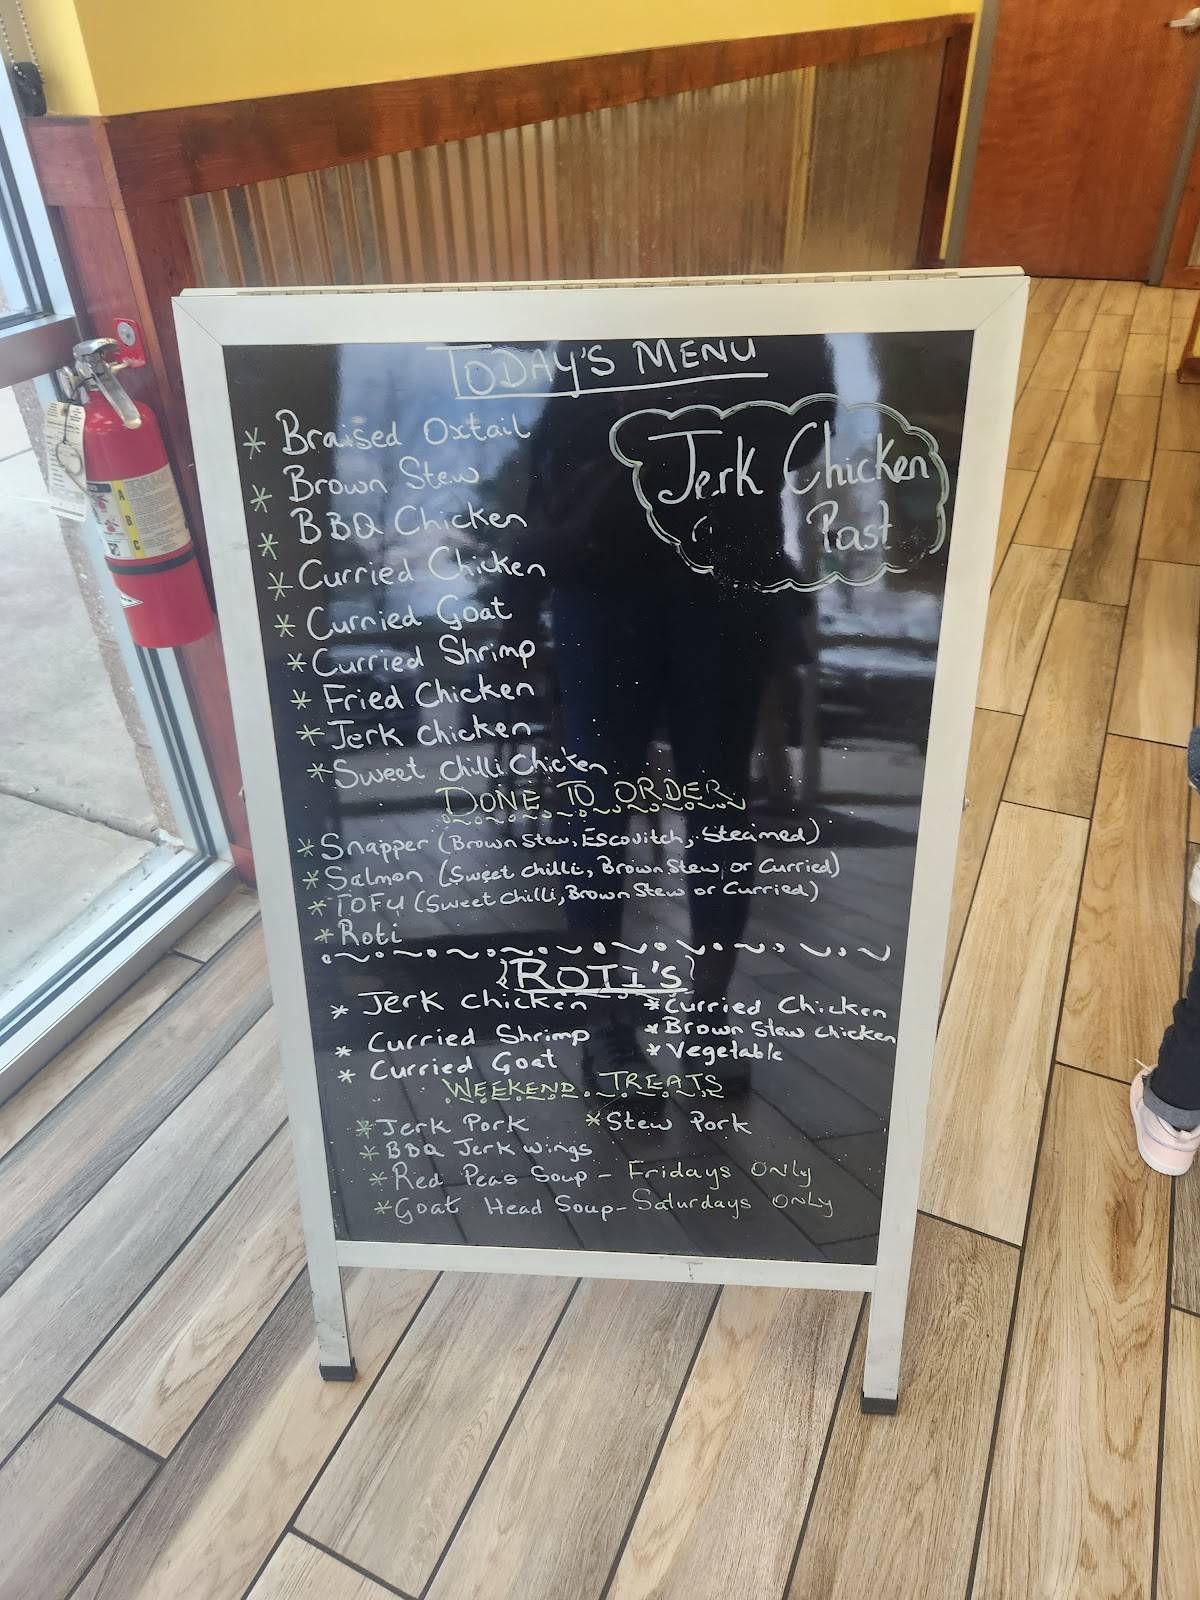 TODAY'S MENU
* Braised Oxtail
* Brown Stew
* BBQ Chicken
* Curried Chicken
* Curried Goat
* Curried Shrimp
* Fried Chicken
* Jerk chicken
* Sweet chilli Chicken
Jerk Chicken
Past
DONE TO ORDER
* Snapper (Brown Stew, Escovitch, Steamed)
* Salmon (Sweet chilli, Brown Stew or Curried)
* TOFU (Sweet chilli, Brown Stew or Curried)
* Roti
ROTI'S
* Jerk chicken
* Curried Shrimp
* Curried Goat
* Curried Chicken
* Brown Stew chicken
* Vegetable
WEEKEND TREATS
* Jerk Pork * Stew Pork
* BBQ Jerk wings
* Red Peas Soup - Fridays ONLY
* Goat Head Soup - Saturdays ONLY
A
B
C